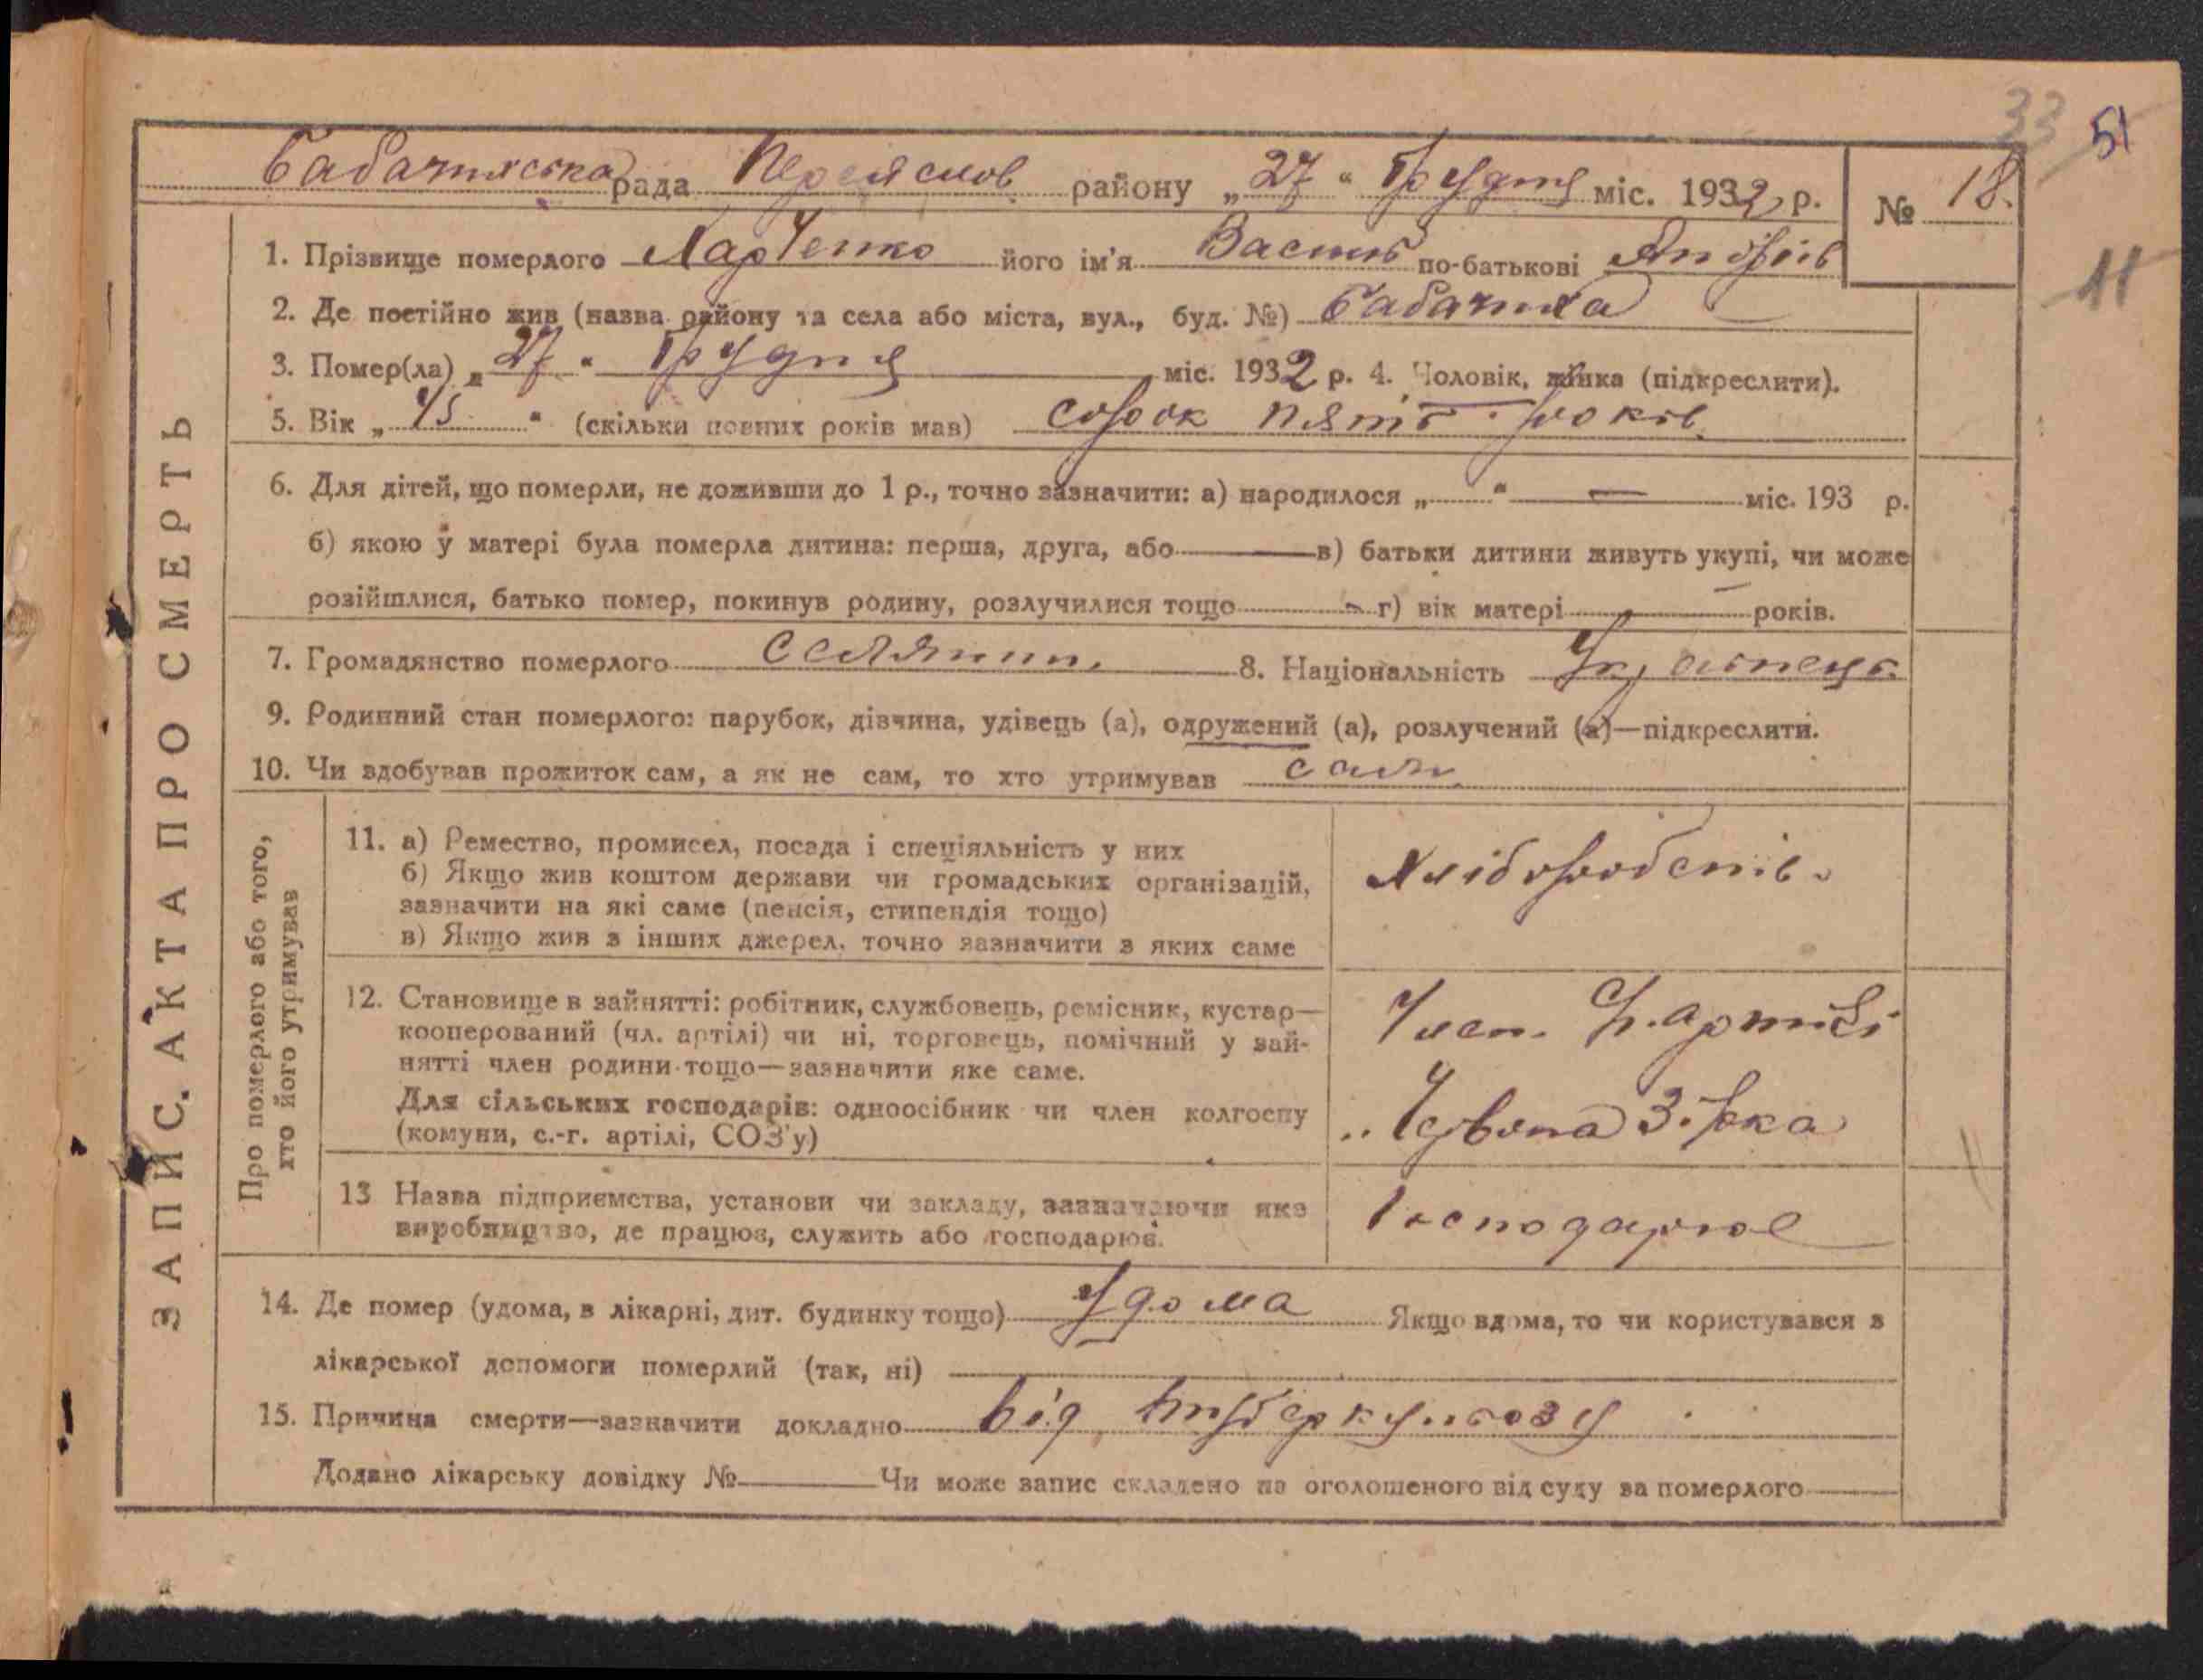 33 51
Бабачихська рада Переяслов району „27“ Грудня міс. 1932 р. № 18.
11
1. Прізвище померлого Харченко його ім'я Василь по-батькові Андріїв
2. Де постійно жив (назва району та села або міста, вул., буд. №) Бабачиха
3. Помер(ла) „27“ Грудня міс. 1932 р. 4. Чоловік, жінка (підкреслити).
5. Вік „45“ (скільки повних років мав) сорок пять років
6. Для дітей, що померли, не доживши до 1 р., точно зазначити: а) народилося „ “ — міс. 193 р.
б) якою у матері була померла дитина: перша, друга, або — в) батьки дитини живуть укупі, чи може
розійшлися, батько помер, покинув родину, розлучилися тощо - г) вік матері — років.
7. Громадянство померлого селянин. 8. Національність Українець
9. Родинний стан померлого: парубок, дівчина, удівець (а), одружений (а), розлучений (а)—підкреслити.
10. Чи здобував прожиток сам, а як не сам, то хто утримував сам
ЗАПИС АКТА ПРО СМЕРТЬ
Про померлого або того,
хто його утримував
11. а) Ремество, промисел, посада і спеціяльність у них
б) Якщо жив коштом держави чи громадських організацій,
зазначити на які саме (пенсія, стипендія тощо)
в) Якщо жив з інших джерел, точно зазначити з яких саме
Хліборобств.
12. Становище в зайнятті: робітник, службовець, ремісник, кустар—
кооперований (чл. артілі) чи ні, торговець, помічний у зай-
нятті член родини тощо—зазначити яке саме.
Для сільських господарів: одноосібник чи член колгоспу
(комуни, с.-г. артілі, СОЗ'у)
Член артілі
„Червона Зірка
13 Назва підприємства, установи чи закладу, зазначаючи яке
виробництво, де працює, служить або господарює.
Господарює
14. Де помер (удома, в лікарні, дит. будинку тощо) Удома Якщо вдома, то чи користувався з
лікарської допомоги померлий (так, ні)
15. Причина смерти—зазначити докладно від туберкульозу
Додано лікарську довідку № — Чи може запис складено па оголошеного від суду за померлого —